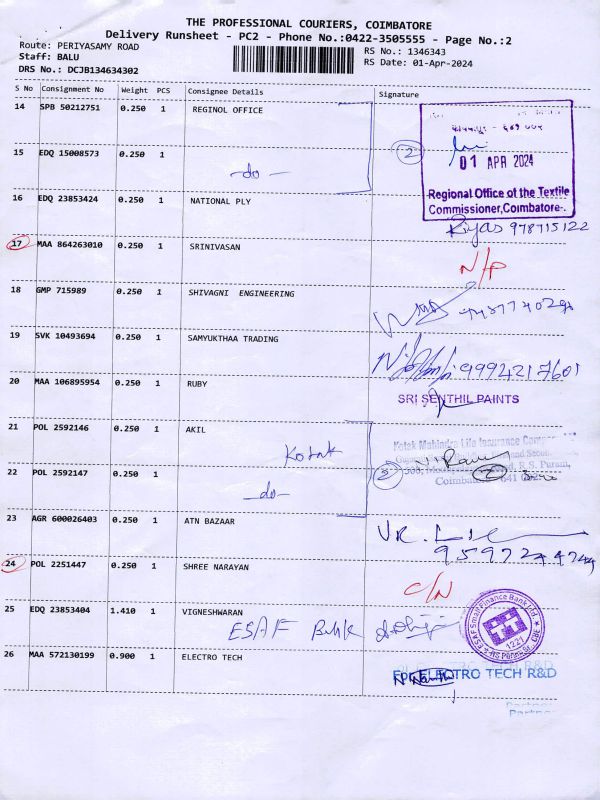 THE PROFESSIONAL COURIERS, COIMBATORE
Delivery Runsheet - PC2 - Phone No.:0422-3505555 - Page No.:2
Route: PERIYASAMY ROAD
RS No.: 1346343
Staff: BALU
RS Date: 01-Apr-2024
DRS No.: DCJB134634302
S No Consignment No Weight PCS Consignee Details Signature
14 SPB 50212751 0.250 1 REGINOL OFFICE
15 EDQ 15008573 0.250 1
-do-
2
01 APR 2024
Regional Office of the Textile
Commissioner, Coimbatore-.
16 EDQ 23853424 0.250 1 NATIONAL PLY
Riyas 978715122
17 MAA 864263010 0.250 1 SRINIVASAN
N/P
18 GMP 715989 0.250 1 SHIVAGNI ENGINEERING
19 SVK 10493694 0.250 1 SAMYUKTHAA TRADING
9994217601
20 MAA 106895954 0.250 1 RUBY
SRI SENTHIL PAINTS
21 POL 2592146 0.250 1 AKIL
Kotak
Kotak Mahindra Life Insurance
22 POL 2592147 0.250 1
-do-
2
R. S. Puram,
Coimbatore
23 AGR 600026403 0.250 1 ATN BAZAAR
24 POL 2251447 0.250 1 SHREE NARAYAN
C/N
25 EDQ 23853404 1.410 1 VIGNESHWARAN
ESAF Bank
ESAF Small Finance Bank Ltd.
1221
26 MAA 572130199 0.900 1 ELECTRO TECH
ELECTRO TECH R&D
Partner